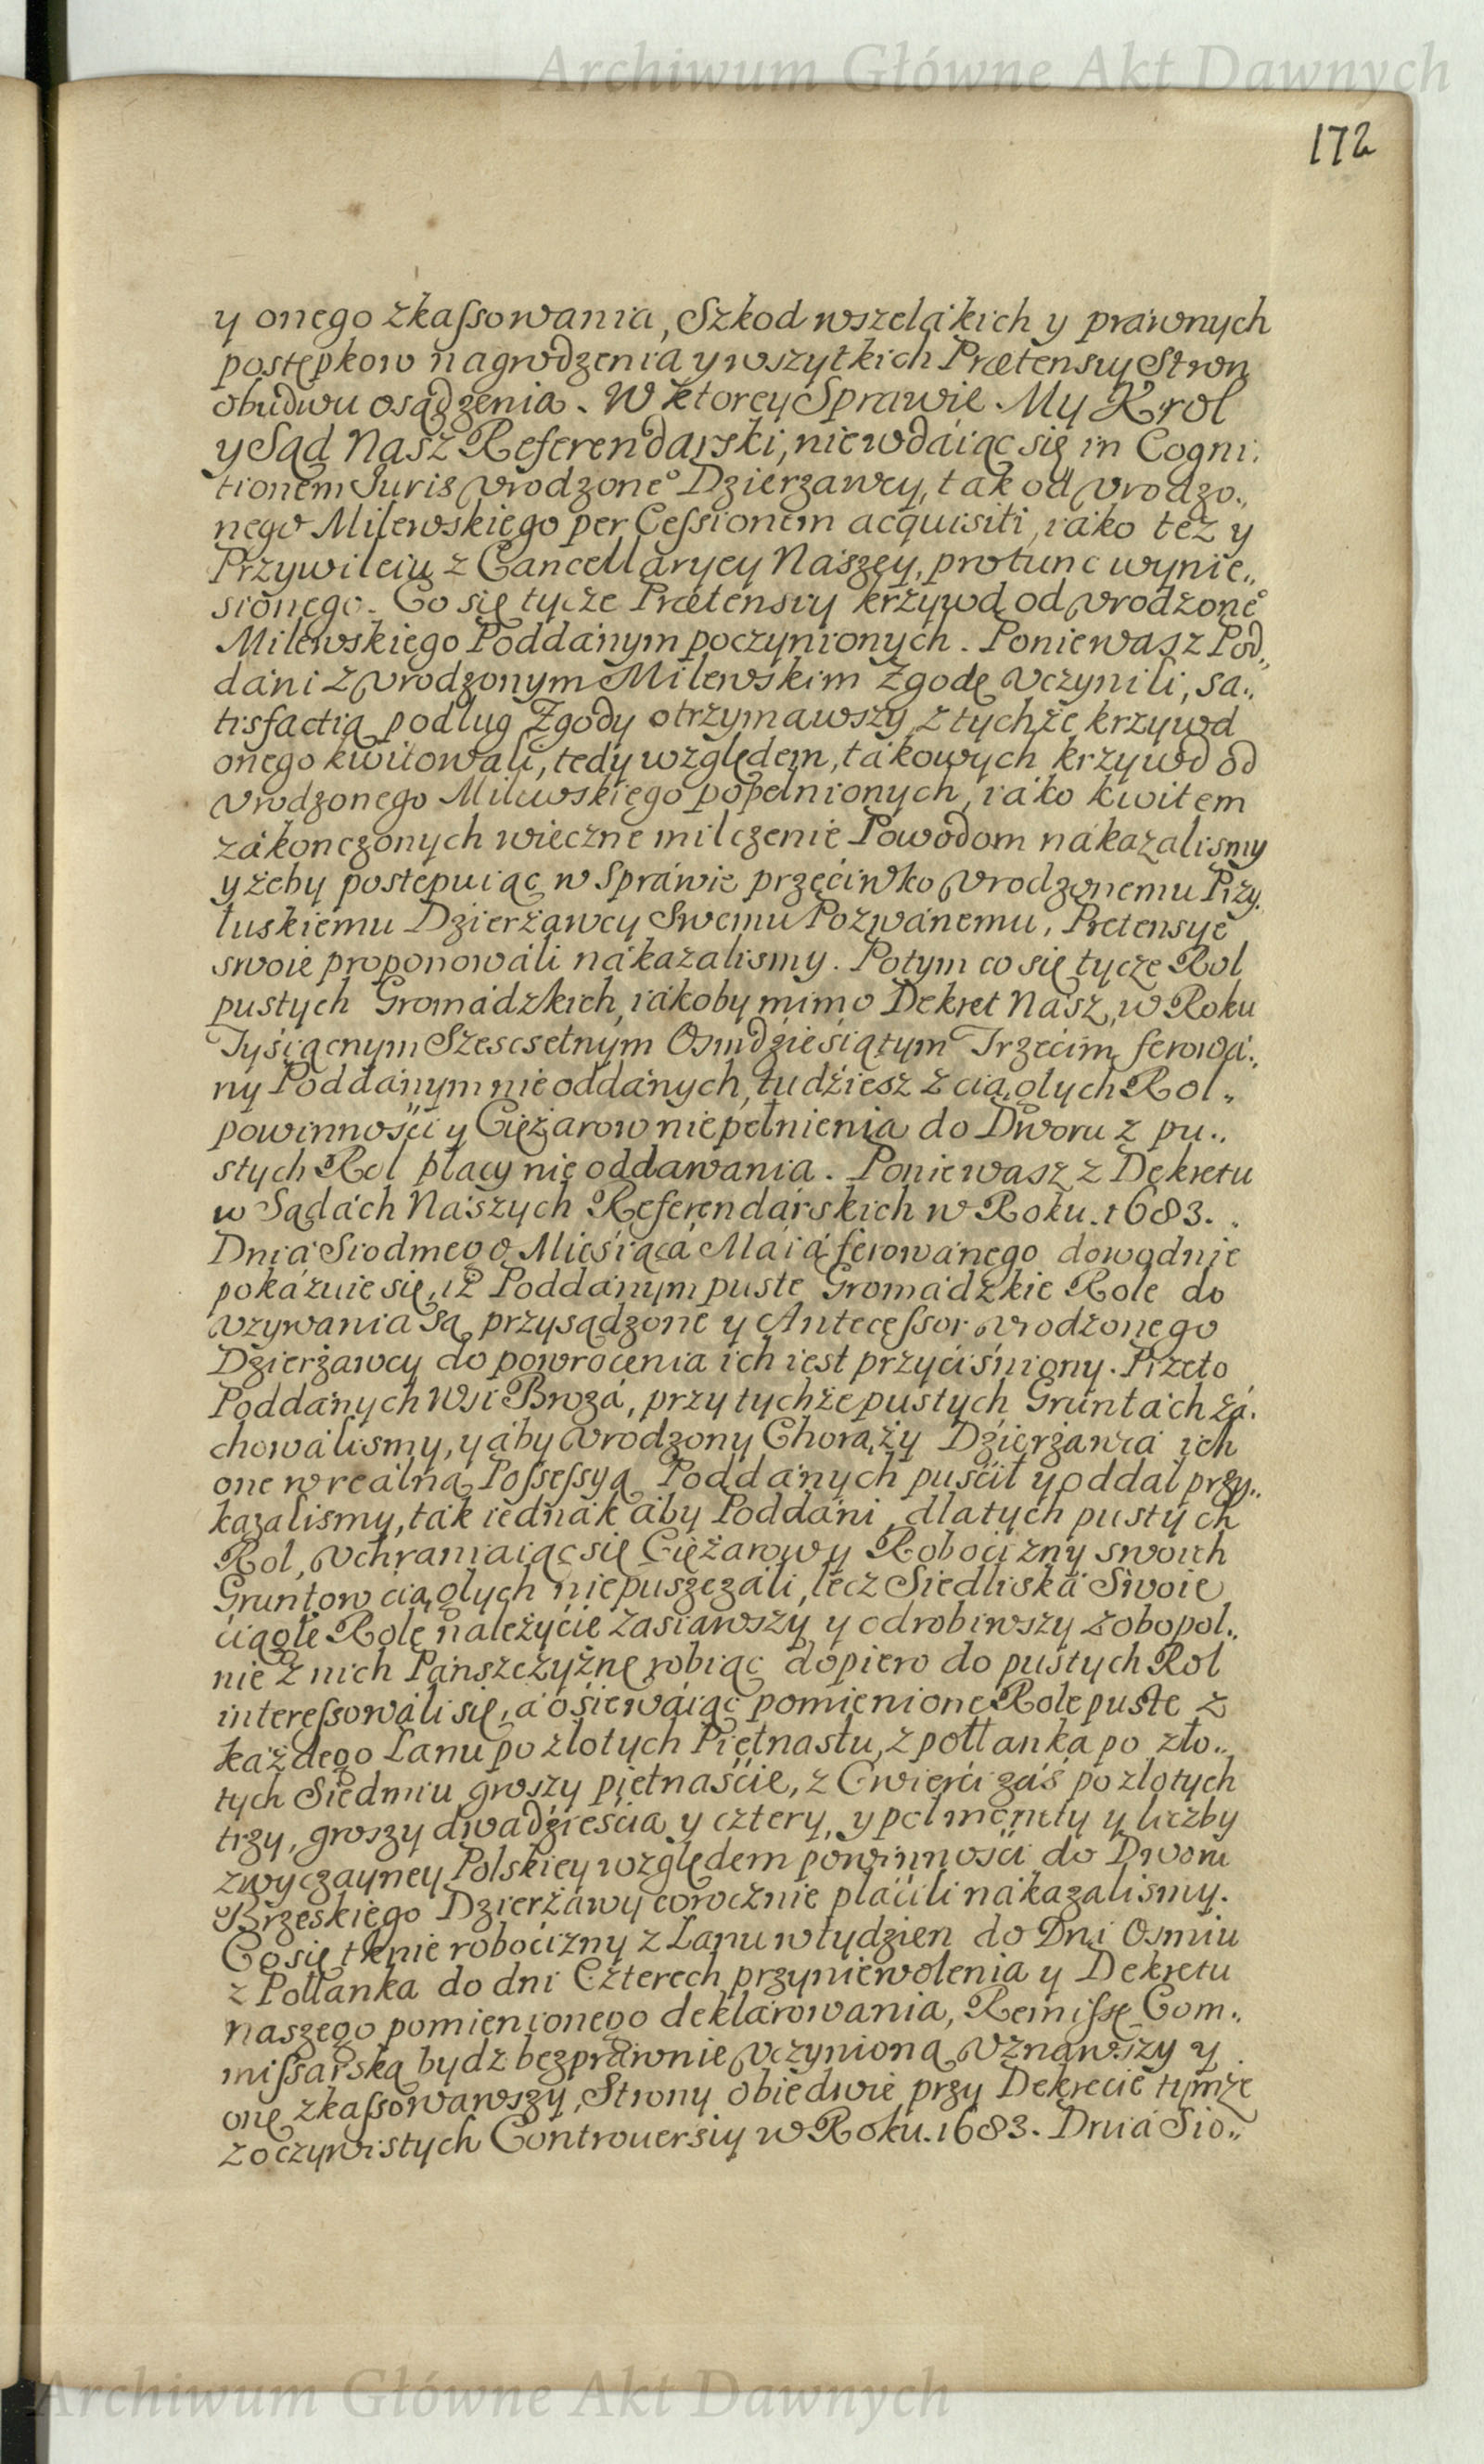 Archiwum Główne Akt Dawnych
172
y onego zkaſsowania, Szkod wszelákich y práwnych
postępkow nagrodzenia y wszytkich Prætensiy Stron
obudwu osądzenia. W ktorey Sprawie. My Krol
y Sąd Nasz Referendarski, niewdáiąc się in Cogni:
tionem Juris Vrodzone° Dzierzawcy, tak od Vrodzo„
nego Milewskiego per Ceſsionem acquisiti, iáko też y
Przywileiu z Cancellaryey Nászey, protunc wynie„
sionego. Co się tycze Prætensiy krzywd od Vrodzone°
Milewskiego Poddánym poczynionych. Poniewasz Pod„
dáni z Vrodzonym Milewskim Zgodę Vczynili, sa„
tisfactią podlug Zgody otrzymawszy z tychże krzywd
onego kwitowali, tedy względem, tákowych krzywd od
Vrodzonego Milewskiego popelnionych, iáko kwitem
zákonczonych wieczne milczenie Powodom nákazalismy
y żeby postępuiąc w Spráwie przećiwko Vrodzonemu Przy„
łuskiemu Dzierżawcy Swemu Pozwánemu, Pretensye
swoie proponowáli nákazalismy. Potym co się tycze Rol
pustych Gromádzkich, iákoby mimo Dekret Nász, w Roku
Tyśiącnym Szescsetnym Osmdzieśiątym Trzećim ferowá„
ny Poddánym nie oddánych, tudźiesz z ciągłych Rol„
powinnośći y Ciężarow niepełnienia do Dworu z pu„
stych Rol płacy nie oddawania. Poniewasz z Dekretu
w Sądách Nászych Referendárskich w Roku. 1683.
Dniá Siodmego Mieśiącá Máiá ferowánego dowodnie
pokázuie się, iż Poddánym puste Gromádzkie Role do
vzywania są przysądzone y Anteceſsor Vrodzonego
Dzierżawcy do powrocenia ich iest przyćiśniony. Przeto
Poddánych Wsi Brozá, przy tychże pustych Gruntách zá„
chowálismy, y áby Vrodzony Chorąży Dzierżawcá ich
one w reálną Poſseſsyą Poddánych puśćił y oddał przy„
kazalismy, ták iednák áby Poddáni, dla tych pustych
Rol, Vchraniáiąc się Ciężarow y Roboćizny swoich
Gruntow ciągłych niepuszczáli, lecz Siedliská Swoie
ćiągłe Role należyćie zasiawszy y odrobiwszy zobopol„
nie z nich Pánszczyznę robiąc dopiero do pustych Rol
intereſsowáli się, á ośiewáiąc pomienione Role puste z
káżdego Lanu po złotych Piętnastu, z połłanka po zło„
tych Siedmiu groszy piętnaśćie, z Cwierci záś po złotych
trzy, groszy dwadźieścia y cztery, y pol monety y liczby
zwyczayney Polskiey względem powinnośći do Dworu
Brzeskiego Dzierżáwy corocznie płáćili nákazalismy.
Co się tknie roboćizny z Lanu w tydzien do Dni Osmiu
z Połłanka do dni Czterech przyniewolenia y Dekretu
naszego pomienionego deklárowania, Remiſsę Com„
miſsarską bydz bezpráwnie Vczynioną Vznawszy y
onę zkaſsowawszy, Strony obiedwie przy Dekrecie tymże
z oczywistych Controuersiy w Roku. 1683. Dniá Sio„
Archiwum Główne Akt Dawnych